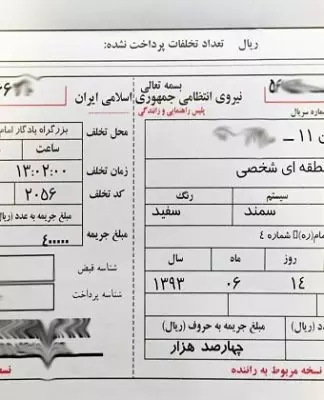 ریال تعداد تخلفات پرداخت نشده:
بسمه تعالی
نیروی انتظامی جمهوری اسلامی ایران
پلیس راهنمایی و رانندگی
شماره سریال
محل تخلف
بزرگراه یادگار امام
ساعت
زمان تخلف
۱۳:۰۲:۰۰
کد تخلف
۲۰۵۶
مبلغ جریمه
مبلغ جریمه به عدد (ریال
۴۰۰۰۰۰
شناسه قبض
شناسه پرداخت
۱۱
منطقه ای شخصی
سیستم
رنگ
سمند
سفید
شماره ٤
روز
ماه
سال
۱۴
۰۶
۱۳۹۳
د (ریال)
مبلغ جریمه به حروف (ریال)
چهارصد هزار
نسخه مربوط به راننده